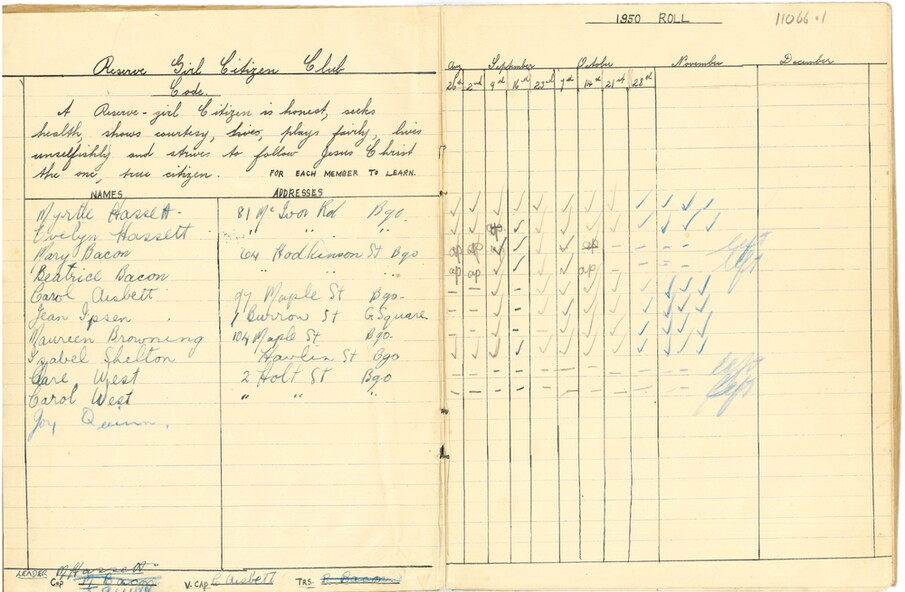 1950 ROLL
11066.1
Reserve Girl Citizen Club
Code.
A Reserve-girl Citizen is honest, seeks
health, shows courtesy, lives, plays fairly, lives
unselfishly and strives to follow Jesus Christ
the one, true citizen. FOR EACH MEMBER TO LEARN.
NAMES ADDRESSES
Aug September October November December
26th 2nd 9th 16th 23rd 7th 14th 21st 28th
Myrtle Hassett 81 McIvor Rd Bgo.
Evelyn Hassett " " "
Mary Bacon 64 Hodkinson St Bgo left
Beatrice Bacon " " " left
Carol Aisbett 97 Maple St Bgo.
Jean Ipsen 1 Burrow St G. Square
Maureen Browning 104 Maple St Bgo.
Isabel Shelton Havlin St Bgo
Clare West 2 Holt St Bgo left
Carol West " " " left
Joy Quinn.
LEADER M Hassett
Cap M Bacon V. CAP C Aisbett TRS. B Bacon
J Quinn